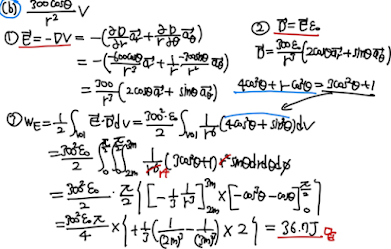 (b) 300cosθ/r² V
① E = -∇V = -(∂V/∂r ar + ∂V/r∂θ aθ)
② D = Eε₀
= -(-600cosθ/r³ ar + 1/r · -300sinθ/r² aθ)
D = 300ε₀/r³ (2cosθ ar + sinθ aθ)
= 300/r³ (2cosθ ar + sinθ aθ)
4cos²θ + 1 - cos²θ = 3cos²θ + 1
③ W_E = 1/2 ∫vol E·D dv = 300²ε₀/2 ∫vol 1/r⁶ (4cos²θ + sin²θ) dV
= 300²ε₀/2 ∫∫∫ 1/r⁶ (3cos²θ+1) r² sinθ dr dθ dφ
= 300²ε₀/2 · π/2 {[-1/3 1/r³] × [-cos³θ - cosθ]}
= 300²ε₀π/4 × {+1/3 (1/(2m)³ - 1/(3m)³) × 2} = 36.7J